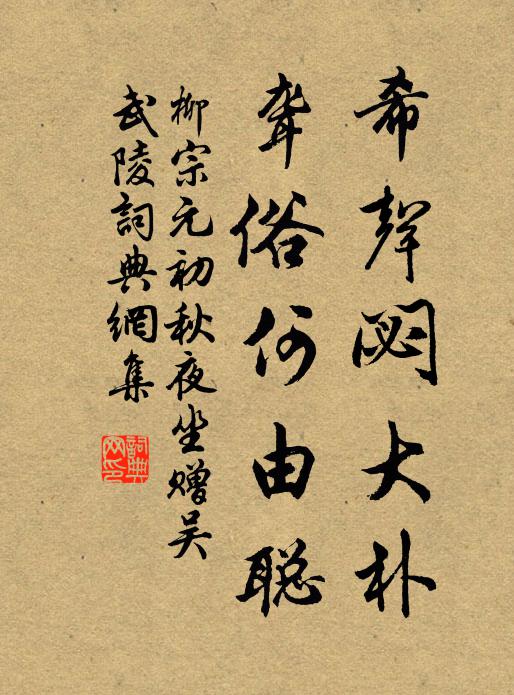 希聲閟大朴
聾俗何由聪
柳宗元初秋夜坐赠吴
武陵詞典網集
詞典网印